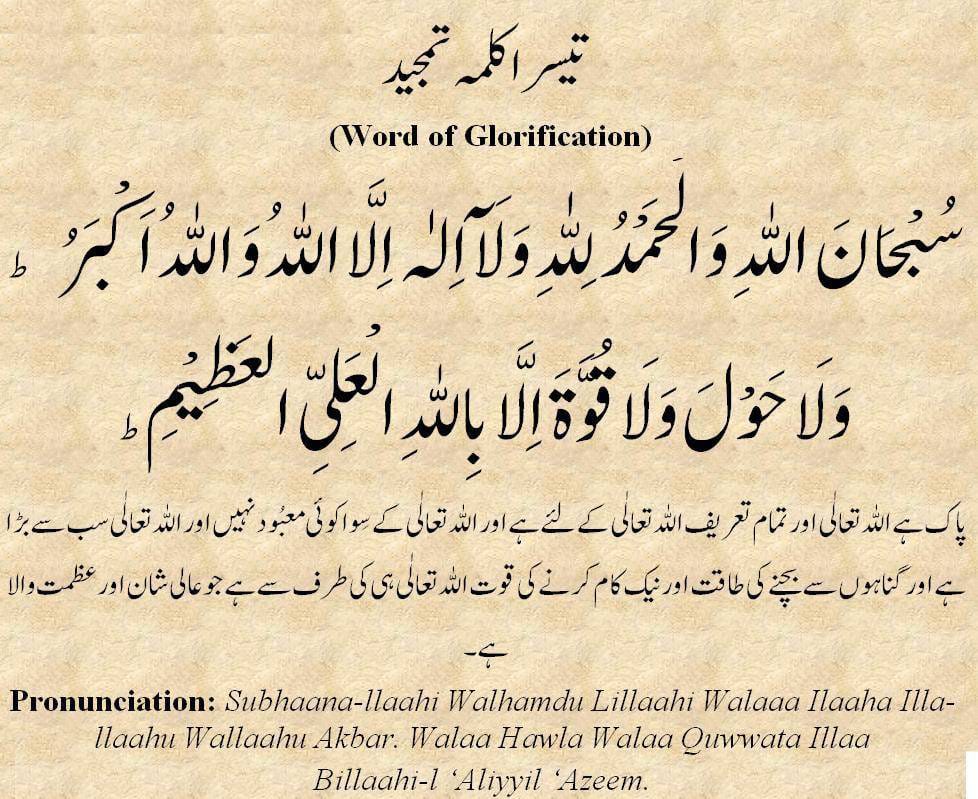 تیسرا کلمہ تمجید
(Word of Glorification)
سُبْحَانَ اللّٰهِ وَالْحَمْدُ لِلّٰهِ وَلَآ اِلٰهَ اِلَّا اللّٰهُ وَاللّٰهُ اَكْبَرُ ؕ
وَلَا حَوْلَ وَلَا قُوَّةَ اِلَّا بِاللّٰهِ الْعَلِیِّ الْعَظِیْمِ ؕ
پاک ہے اللہ تعالٰی اور تمام تعریف اللہ تعالٰی کے لئے ہے اور اللہ تعالٰی کے سِوا کوئی معبُود نہیں اور اللہ تعالٰی سب سے بڑا
ہے اور گناہوں سے بچنے کی طاقت اور نیک کام کرنے کی قوت اللہ تعالٰی ہی کی طرف سے ہے جو عالی شان اور عظمت والا
ہے۔
Pronunciation: Subhaana-llaahi Walhamdu Lillaahi Walaaa Ilaaha Illa-
llaahu Wallaahu Akbar. Walaa Hawla Walaa Quwwata Illaa
Billaahi-l ‘Aliyyil ‘Azeem.